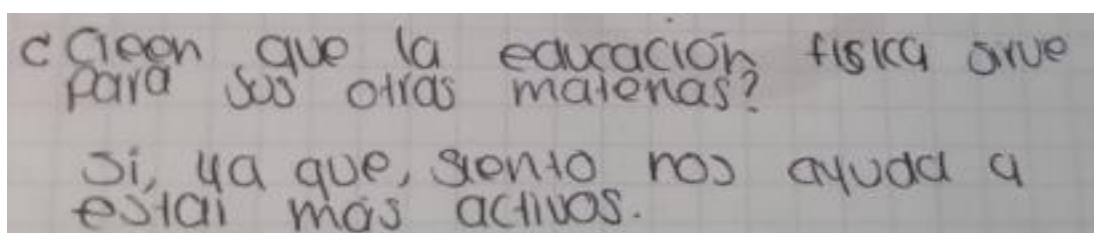 ¿Creen que la educación física sirve
para sus otras materias?
Sí, ya que, siento nos ayuda a
estar más activos.